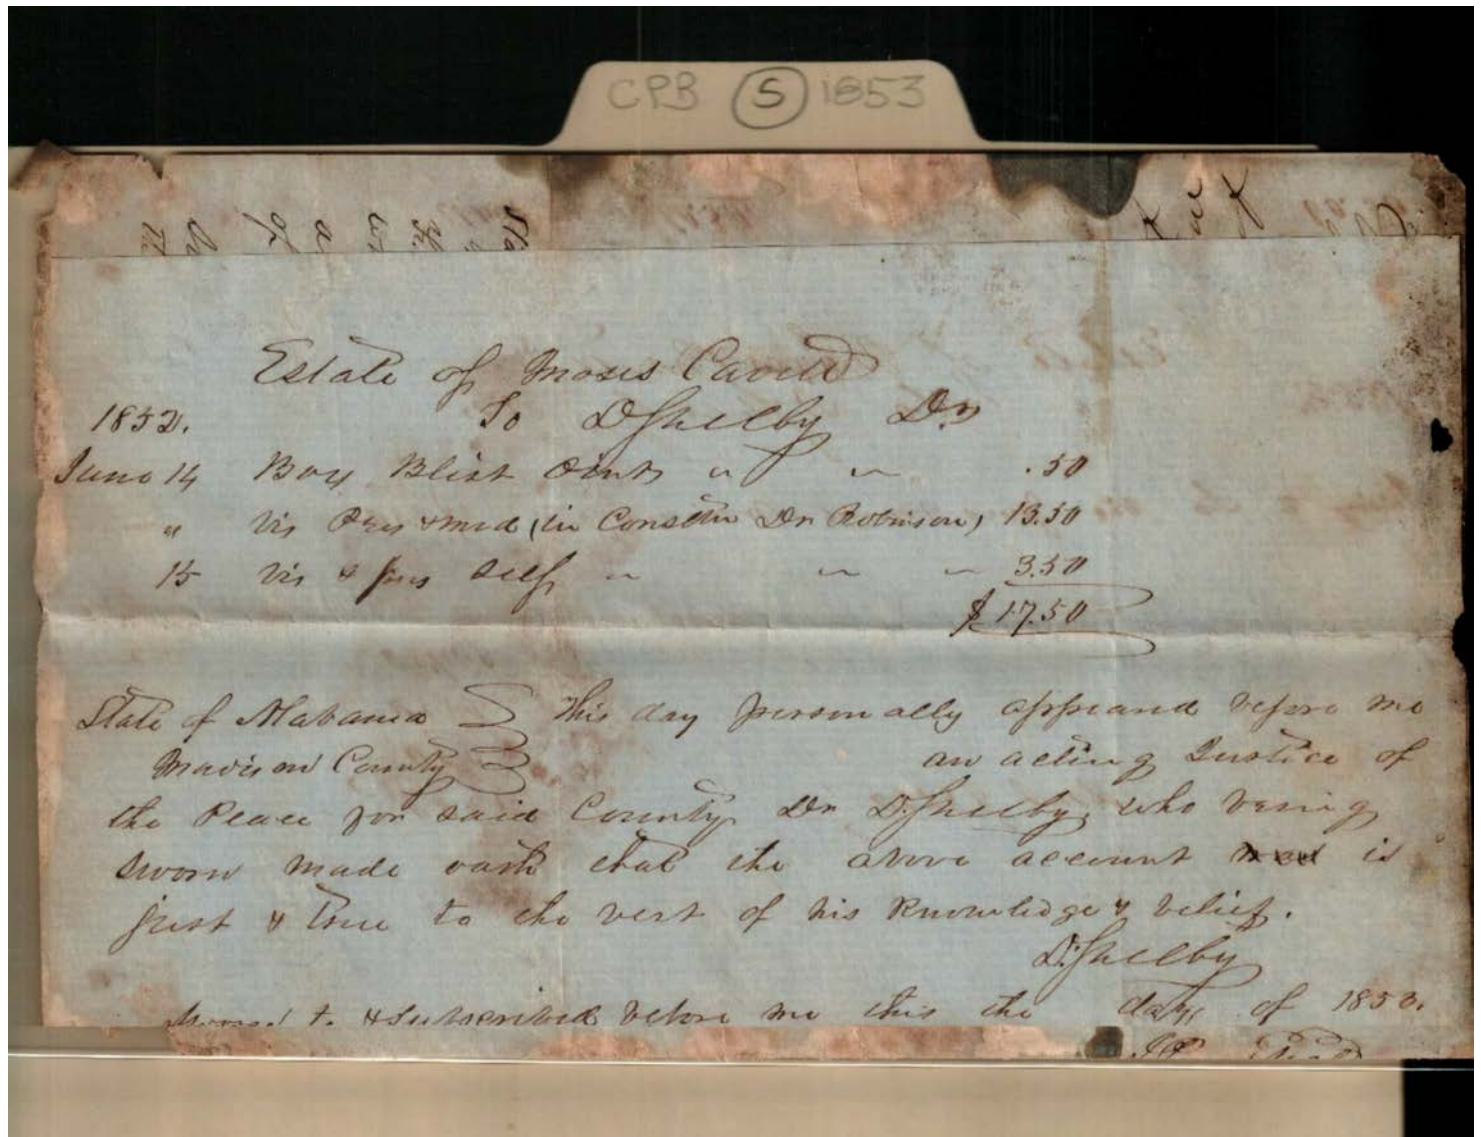 CPB S 1853
Estate of Moses
1852. To D Shelby Dr
June 14 Box Blist Oint " " .50
" Vis Pres & med (in Consltn Dr Robinson) 13.50
15 Vis & pres self " " " 3.50
$17.50
State of Alabama This day personally appeared before me
Madison County an acting Justice of
the Peace for said County Dr D. Shelby, who being
sworn made oath that the above account is
just & true to the best of his Knowledge & belief.
D. Shelby
Sworn to & Subscribed before me this the day of 1853.